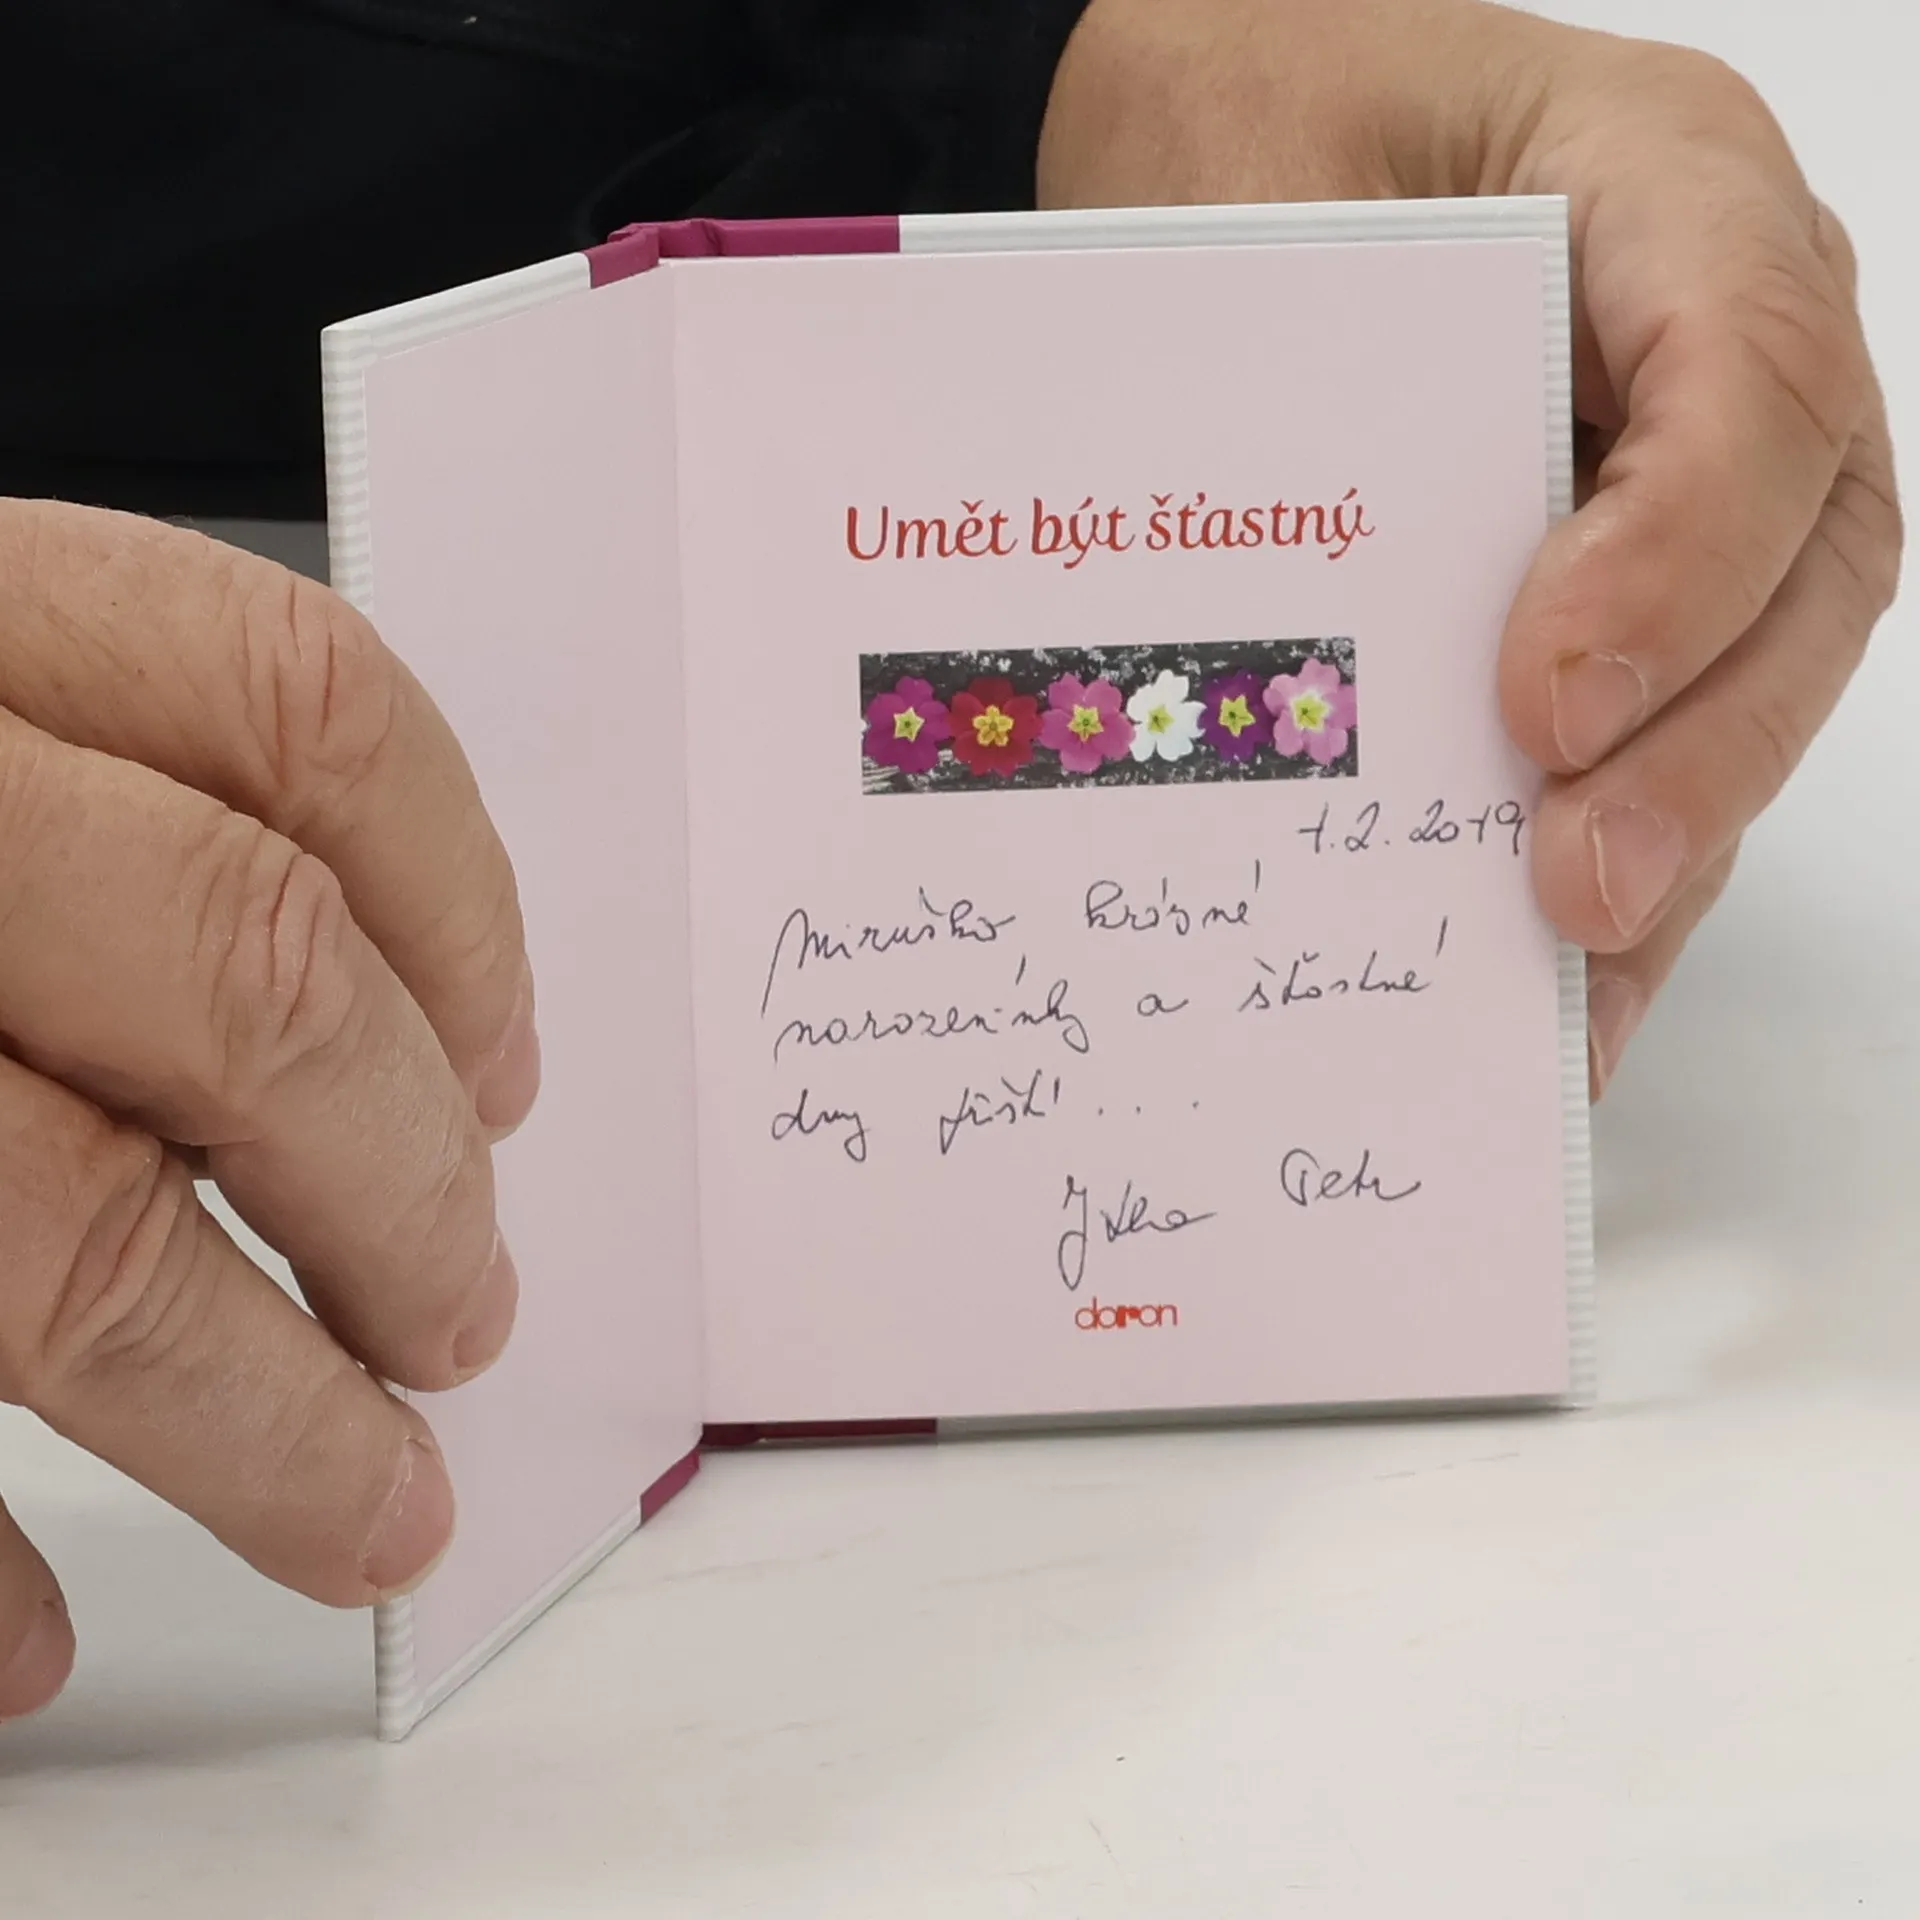 Umět být šťastný
1.2.2019
Miruško, krásné
narozeninky a šťastné
dny příští...
Jitka Petr
doron